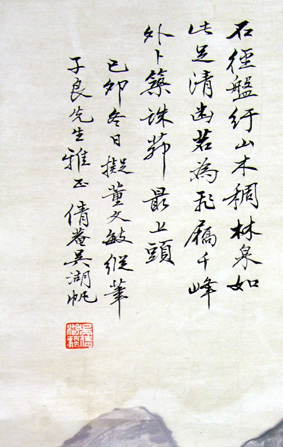 石徑盤紆山木稠林泉如
此足清幽若為飛屩千峰
外卜築誅茅最上頭
己卯冬日擬董文敏縱筆
子良先生雅正倩菴吳湖帆